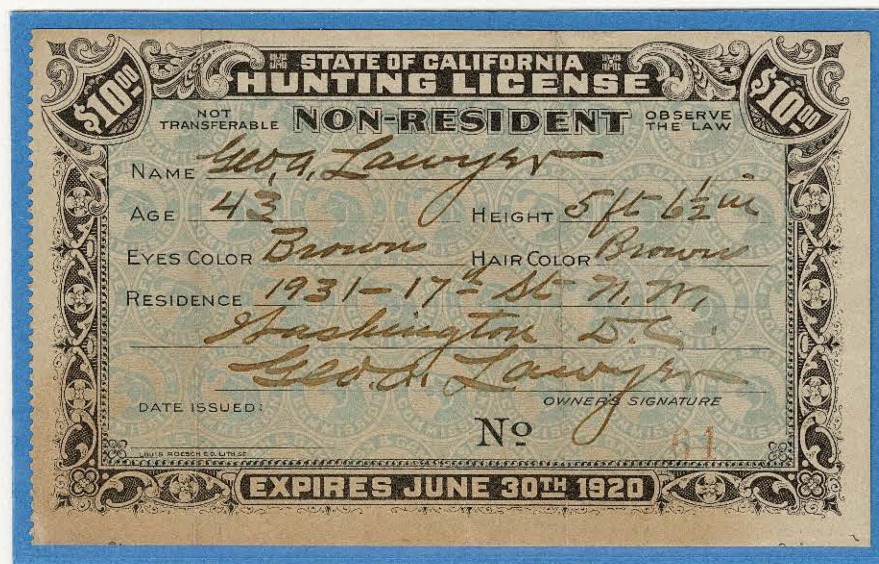 STATE OF CALIFORNIA
HUNTING LICENSE
$10.00 $10.00
NOT TRANSFERABLE NON-RESIDENT OBSERVE THE LAW
NAME Geo. A. Lawyer
AGE 43 HEIGHT 5 ft 6 1/2 in
EYES COLOR Brown HAIR COLOR Brown
RESIDENCE 1931-17th St N.W.,
Washington D.C.
Geo. A. Lawyer
DATE ISSUED: OWNER'S SIGNATURE
No 61
LOUIS ROESCH CO. LITH. S.F.
EXPIRES JUNE 30TH 1920